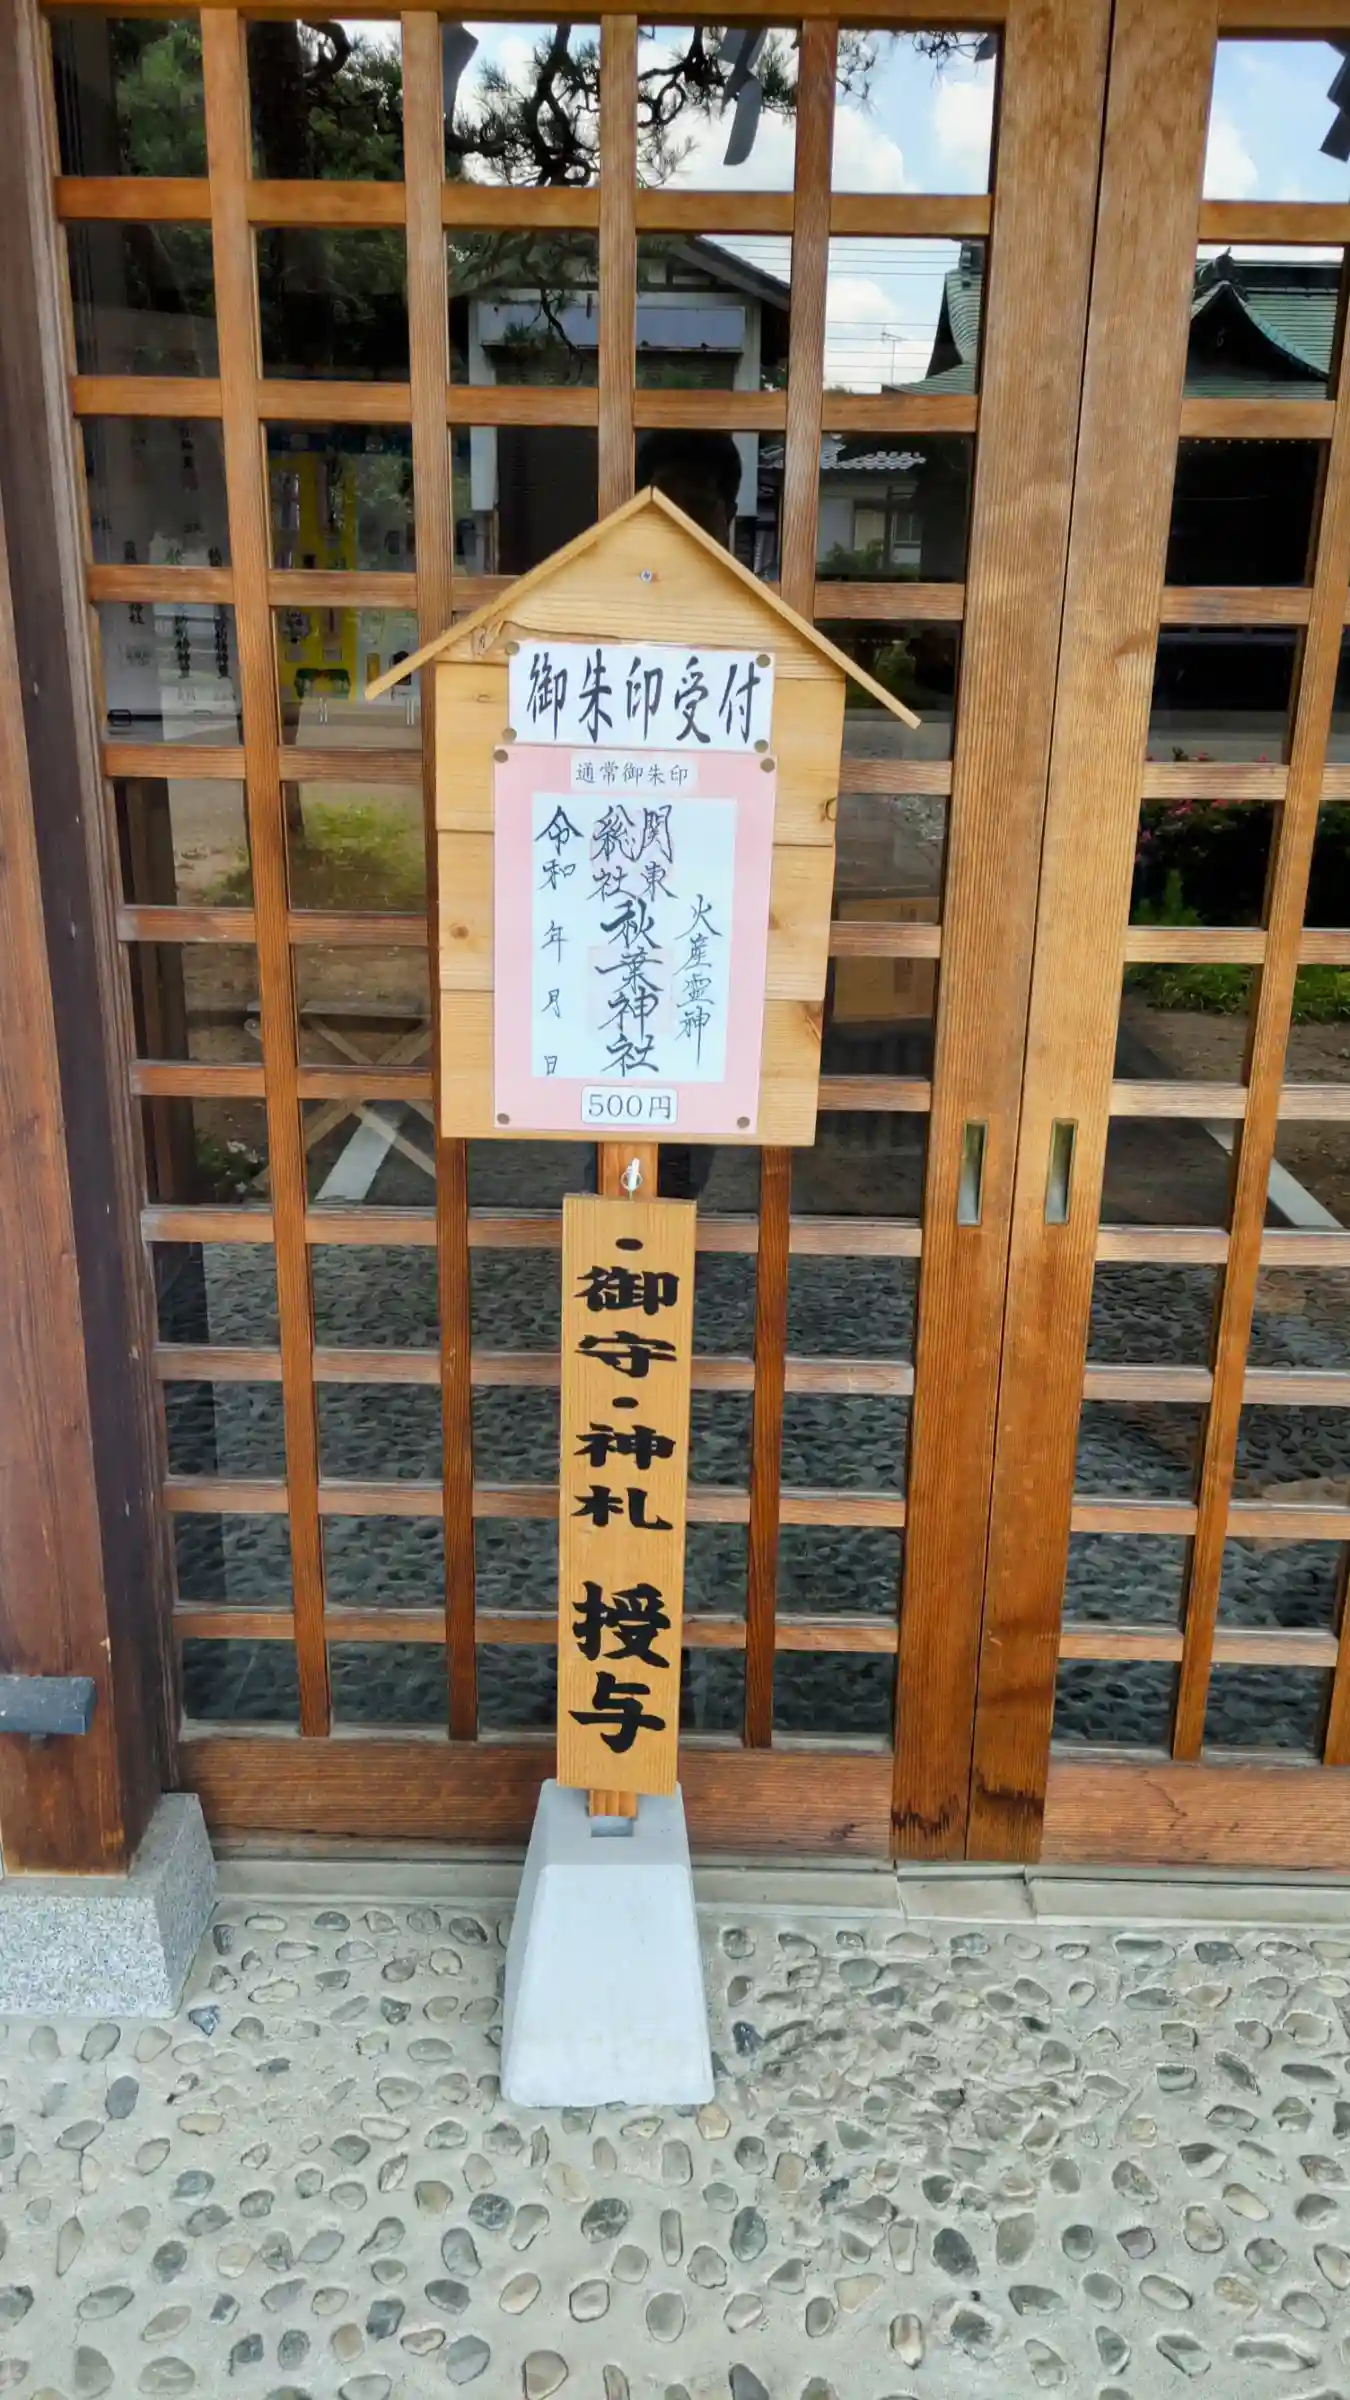 御朱印受付
通常御朱印
火産霊神
関東
総社
秋葉神社
令和 年 月 日
500円
・御守・神札 授与